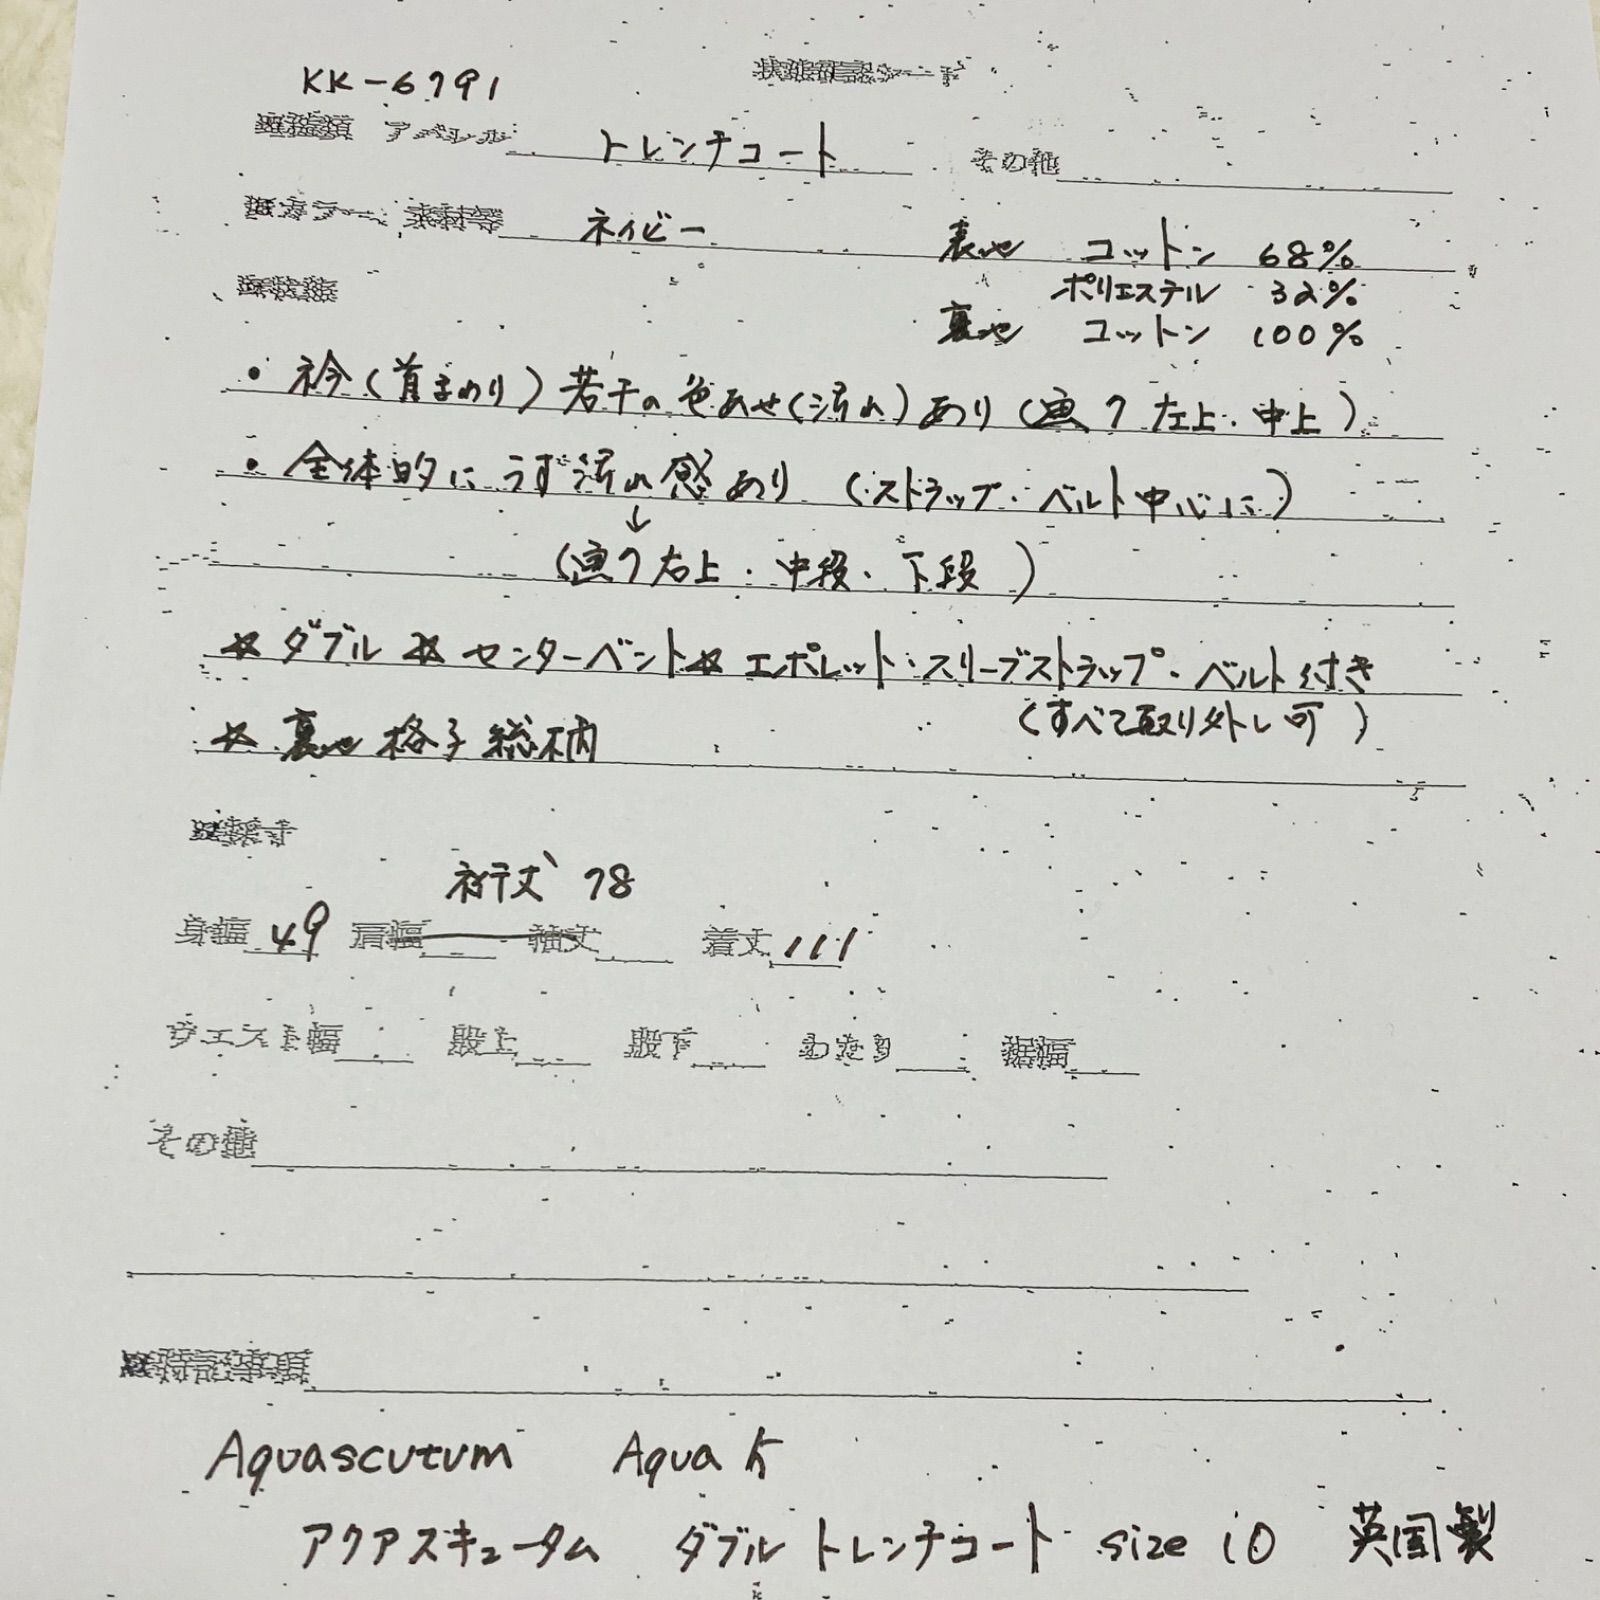 状態確認シート
KK-6791
アパレル トレンチコート その他
カラー 素材等 ネイビー 表地 コットン 68%
ポリエステル 32%
裏地 コットン 100%
・衿(首まわり)若干の色あせ(汚れ)あり(画7 左上・中上)
・全体的にうす汚れ感あり(ストラップ・ベルト中心に)
↓
(画7右上・中段・下段)
☆ダブル ☆センターベント☆エポレット・スリーブストラップ・ベルト付き
(すべて取り外し可)
☆裏地 格子総柄
裄丈 78
身幅 49 肩幅 袖丈 着丈 111
ウエスト幅 股上 股下 わたり 裾幅
その他
特記事項
Aquascutum Aqua
アクアスキュータム ダブル トレンチコート size 10 英国製